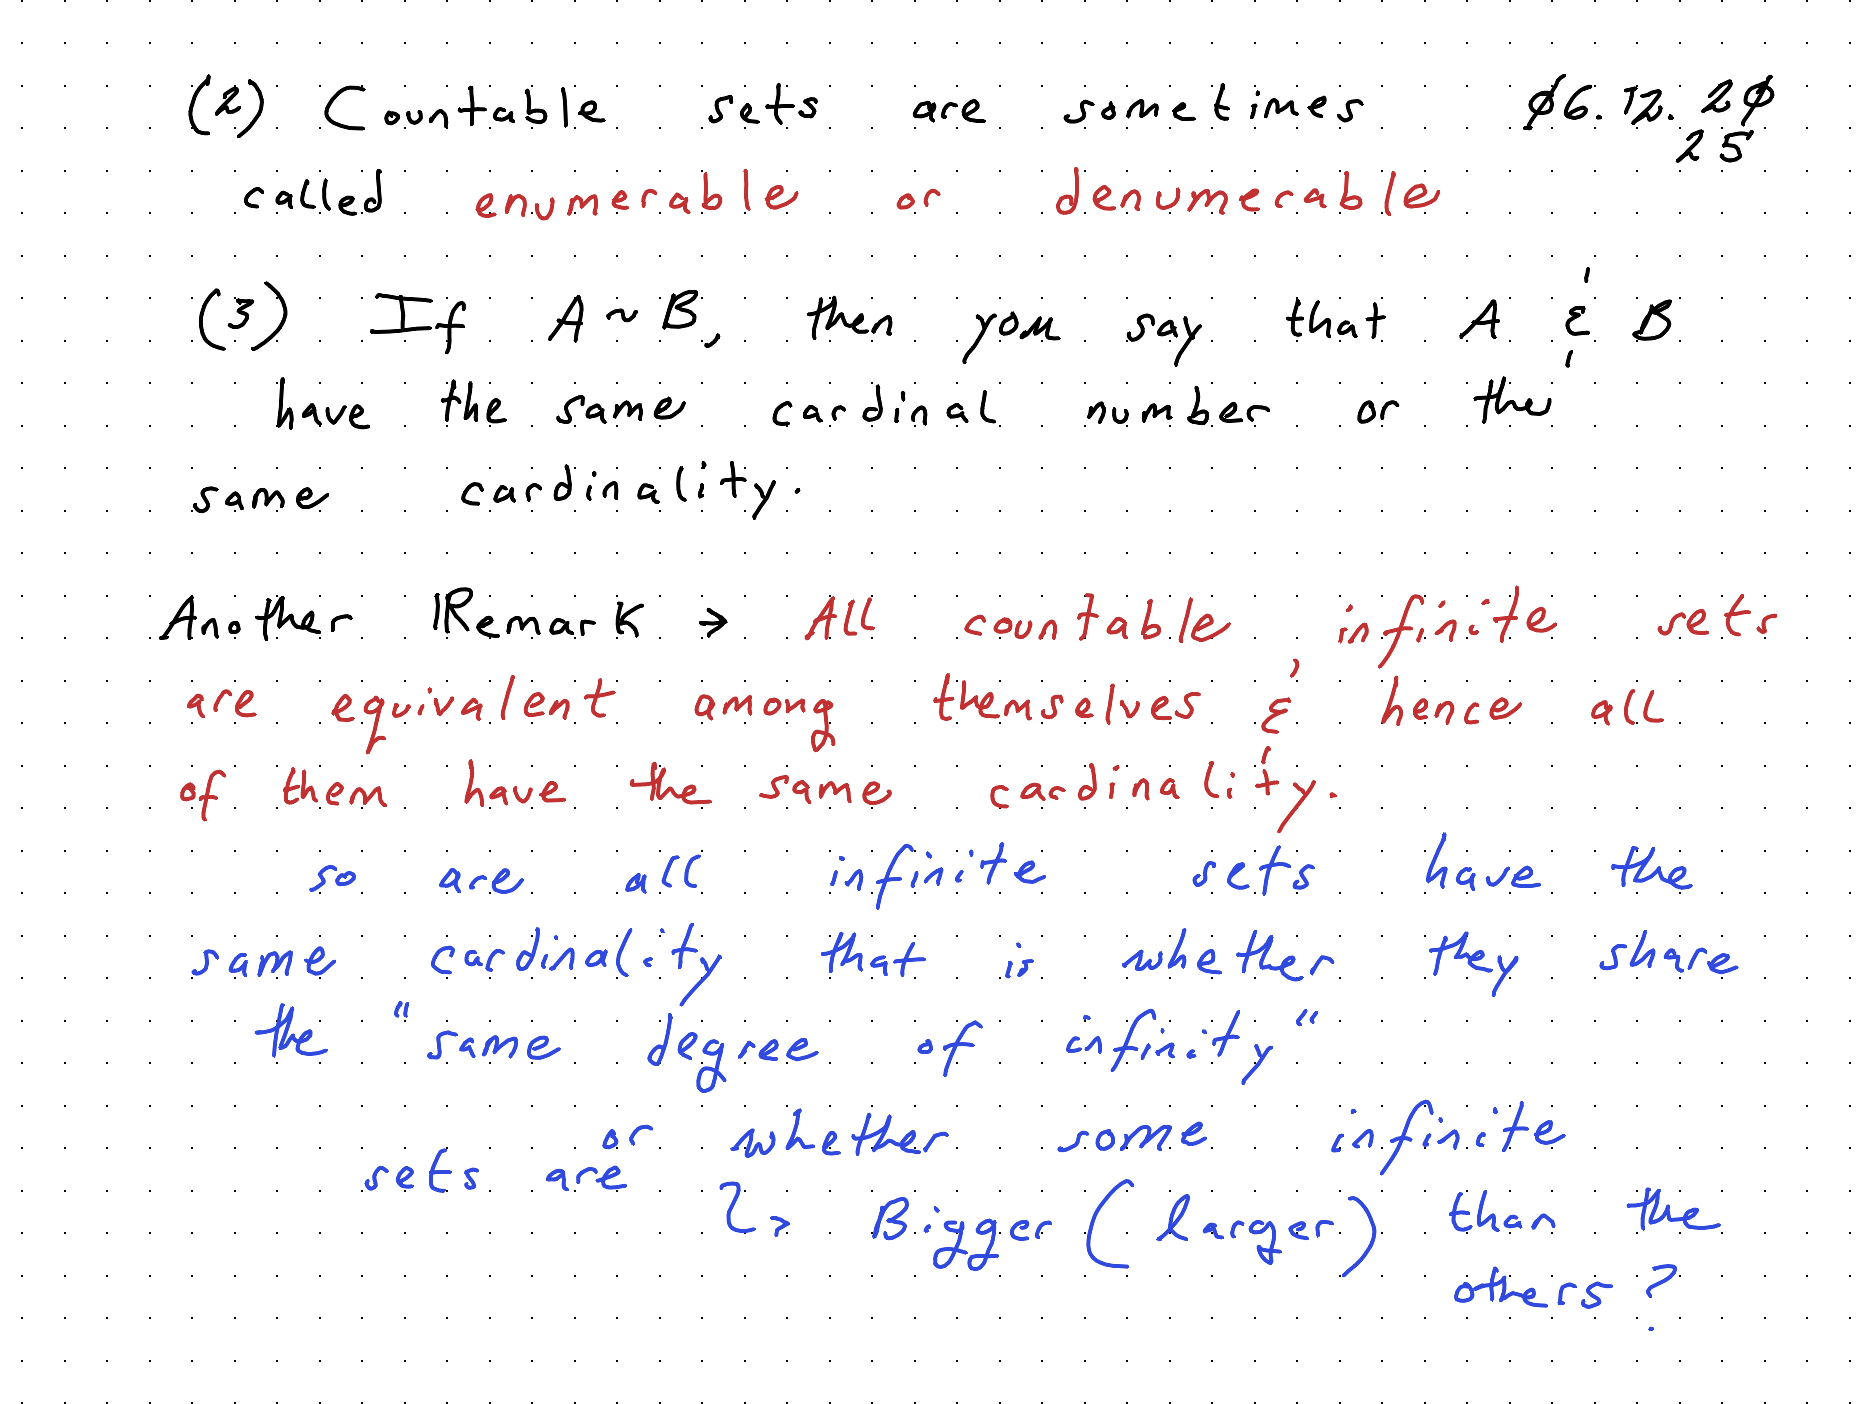 (2) Countable sets are sometimes 06.12.20
25
called enumerable or denumerable
(3) If A ~ B, then you say that A & B
have the same cardinal number or the
same cardinality.
Another Remark → All countable infinite sets
are equivalent among themselves & hence all
of them have the same cardinality.
so are all infinite sets have the
same cardinality that is whether they share
the "same degree of infinity"
or whether some infinite
sets are
↳ Bigger (larger) than the
others?